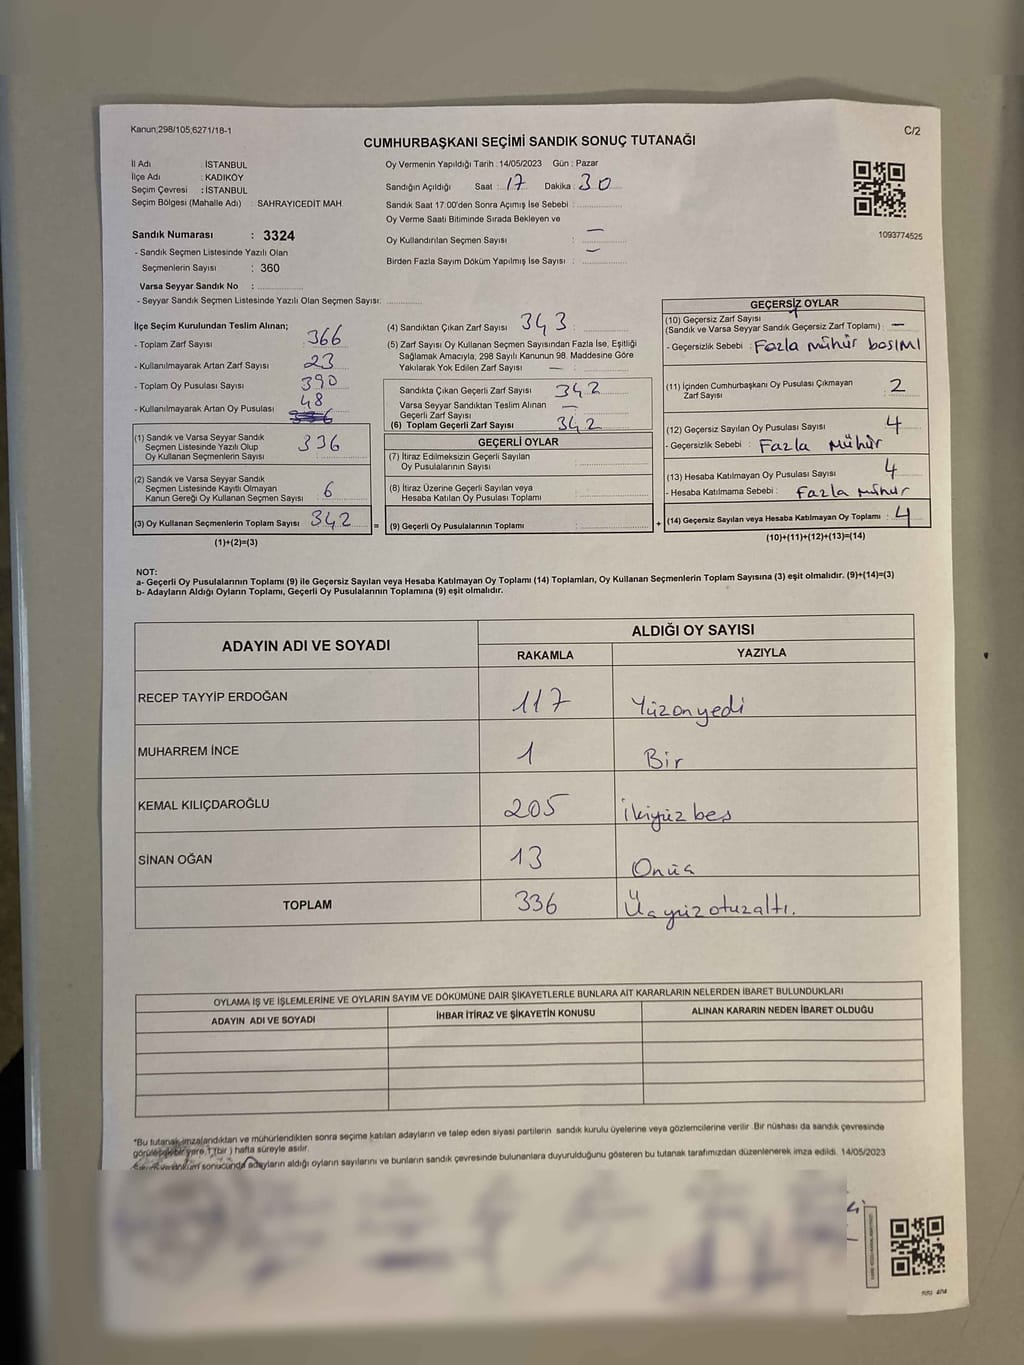 Kanun;298/105;6271/18-1
C/2
CUMHURBAŞKANI SEÇİMİ SANDIK SONUÇ TUTANAĞI
İl Adı : İSTANBUL
İlçe Adı : KADIKÖY
Seçim Çevresi : İSTANBUL
Seçim Bölgesi (Mahalle Adı) : SAHRAYICEDİT MAH.
Sandık Numarası : 3324
- Sandık Seçmen Listesinde Yazılı Olan
Seçmenlerin Sayısı : 360
Varsa Seyyar Sandık No :
- Seyyar Sandık Seçmen Listesinde Yazılı Olan Seçmen Sayısı:
Oy Vermenin Yapıldığı Tarih : 14/05/2023 Gün : Pazar
Sandığın Açıldığı Saat : 17 Dakika : 30
Sandık Saat 17:00'den Sonra Açımış İse Sebebi :
Oy Verme Saati Bitiminde Sırada Bekleyen ve
Oy Kullandırılan Seçmen Sayısı : —
Birden Fazla Sayım Döküm Yapılmış İse Sayısı : —
1093774525
İlçe Seçim Kurulundan Teslim Alınan;
- Toplam Zarf Sayısı : 366
- Kullanılmayarak Artan Zarf Sayısı : 23
- Toplam Oy Pusulası Sayısı : 390
- Kullanılmayarak Artan Oy Pusulası : 48
(1) Sandık ve Varsa Seyyar Sandık
Seçmen Listesinde Yazılı Olup
Oy Kullanan Seçmenlerin Sayısı : 336
(2) Sandık ve Varsa Seyyar Sandık
Seçmen Listesinde Kayıtlı Olmayan
Kanun Gereği Oy Kullanan Seçmen Sayısı : 6
(3) Oy Kullanan Seçmenlerin Toplam Sayısı : 342 =
(1)+(2)=(3)
(4) Sandıktan Çıkan Zarf Sayısı : 343
(5) Zarf Sayısı Oy Kullanan Seçmen Sayısından Fazla İse, Eşitliği
Sağlamak Amacıyla, 298 Sayılı Kanunun 98. Maddesine Göre
Yakılarak Yok Edilen Zarf Sayısı : —
Sandıkta Çıkan Geçerli Zarf Sayısı : 342
Varsa Seyyar Sandıktan Teslim Alınan
Geçerli Zarf Sayısı : —
(6) Toplam Geçerli Zarf Sayısı : 342
GEÇERLİ OYLAR
(7) İtiraz Edilmeksizin Geçerli Sayılan
Oy Pusulalarının Sayısı :
(8) İtiraz Üzerine Geçerli Sayılan veya
Hesaba Katılan Oy Pusulası Toplamı :
(9) Geçerli Oy Pusulalarının Toplamı : +
GEÇERSİZ OYLAR
(10) Geçersiz Zarf Sayısı
(Sandık ve Varsa Seyyar Sandık Geçersiz Zarf Toplamı) : —
- Geçersizlik Sebebi : Fazla mühür basımı
(11) İçinden Cumhurbaşkanı Oy Pusulası Çıkmayan
Zarf Sayısı : 2
(12) Geçersiz Sayılan Oy Pusulası Sayısı : 4
- Geçersizlik Sebebi : Fazla Mühür
(13) Hesaba Katılmayan Oy Pusulası Sayısı : 4
- Hesaba Katılmama Sebebi : Fazla mühür
(14) Geçersiz Sayılan veya Hesaba Katılmayan Oy Toplamı : 4
(10)+(11)+(12)+(13)=(14)
NOT:
a- Geçerli Oy Pusulalarının Toplamı (9) ile Geçersiz Sayılan veya Hesaba Katılmayan Oy Toplamı (14) Toplamları, Oy Kullanan Seçmenlerin Toplam Sayısına (3) eşit olmalıdır. (9)+(14)=(3)
b- Adayların Aldığı Oyların Toplamı, Geçerli Oy Pusulalarının Toplamına (9) eşit olmalıdır.
ADAYIN ADI VE SOYADI
ALDIĞI OY SAYISI
RAKAMLA YAZIYLA
RECEP TAYYİP ERDOĞAN 117 Yüzonyedi
MUHARREM İNCE 1 Bir
KEMAL KILIÇDAROĞLU 205 İkiyüz beş
SİNAN OĞAN 13 Onüç
TOPLAM 336 Üçyüzotuzaltı.
OYLAMA İŞ VE İŞLEMLERİNE VE OYLARIN SAYIM VE DÖKÜMÜNE DAİR ŞİKAYETLERLE BUNLARA AİT KARARLARIN NELERDEN İBARET BULUNDUKLARI
ADAYIN ADI VE SOYADI İHBAR İTİRAZ VE ŞİKAYETİN KONUSU ALINAN KARARIN NEDEN İBARET OLDUĞU
*Bu tutanak imzalandıktan ve mühürlendikten sonra seçime katılan adayların ve talep eden siyasi partilerin sandık kurulu üyelerine veya gözlemcilerine verilir. Bir nüshası da sandık çevresinde
görülebilir yere 1 (bir) hafta süreyle asılır.
sonucunda adayların aldığı oyların sayılarını ve bunların sandık çevresinde bulunanlara duyurulduğunu gösteren bu tutanak tarafımızdan düzenlenerek imza edildi. 14/05/2023